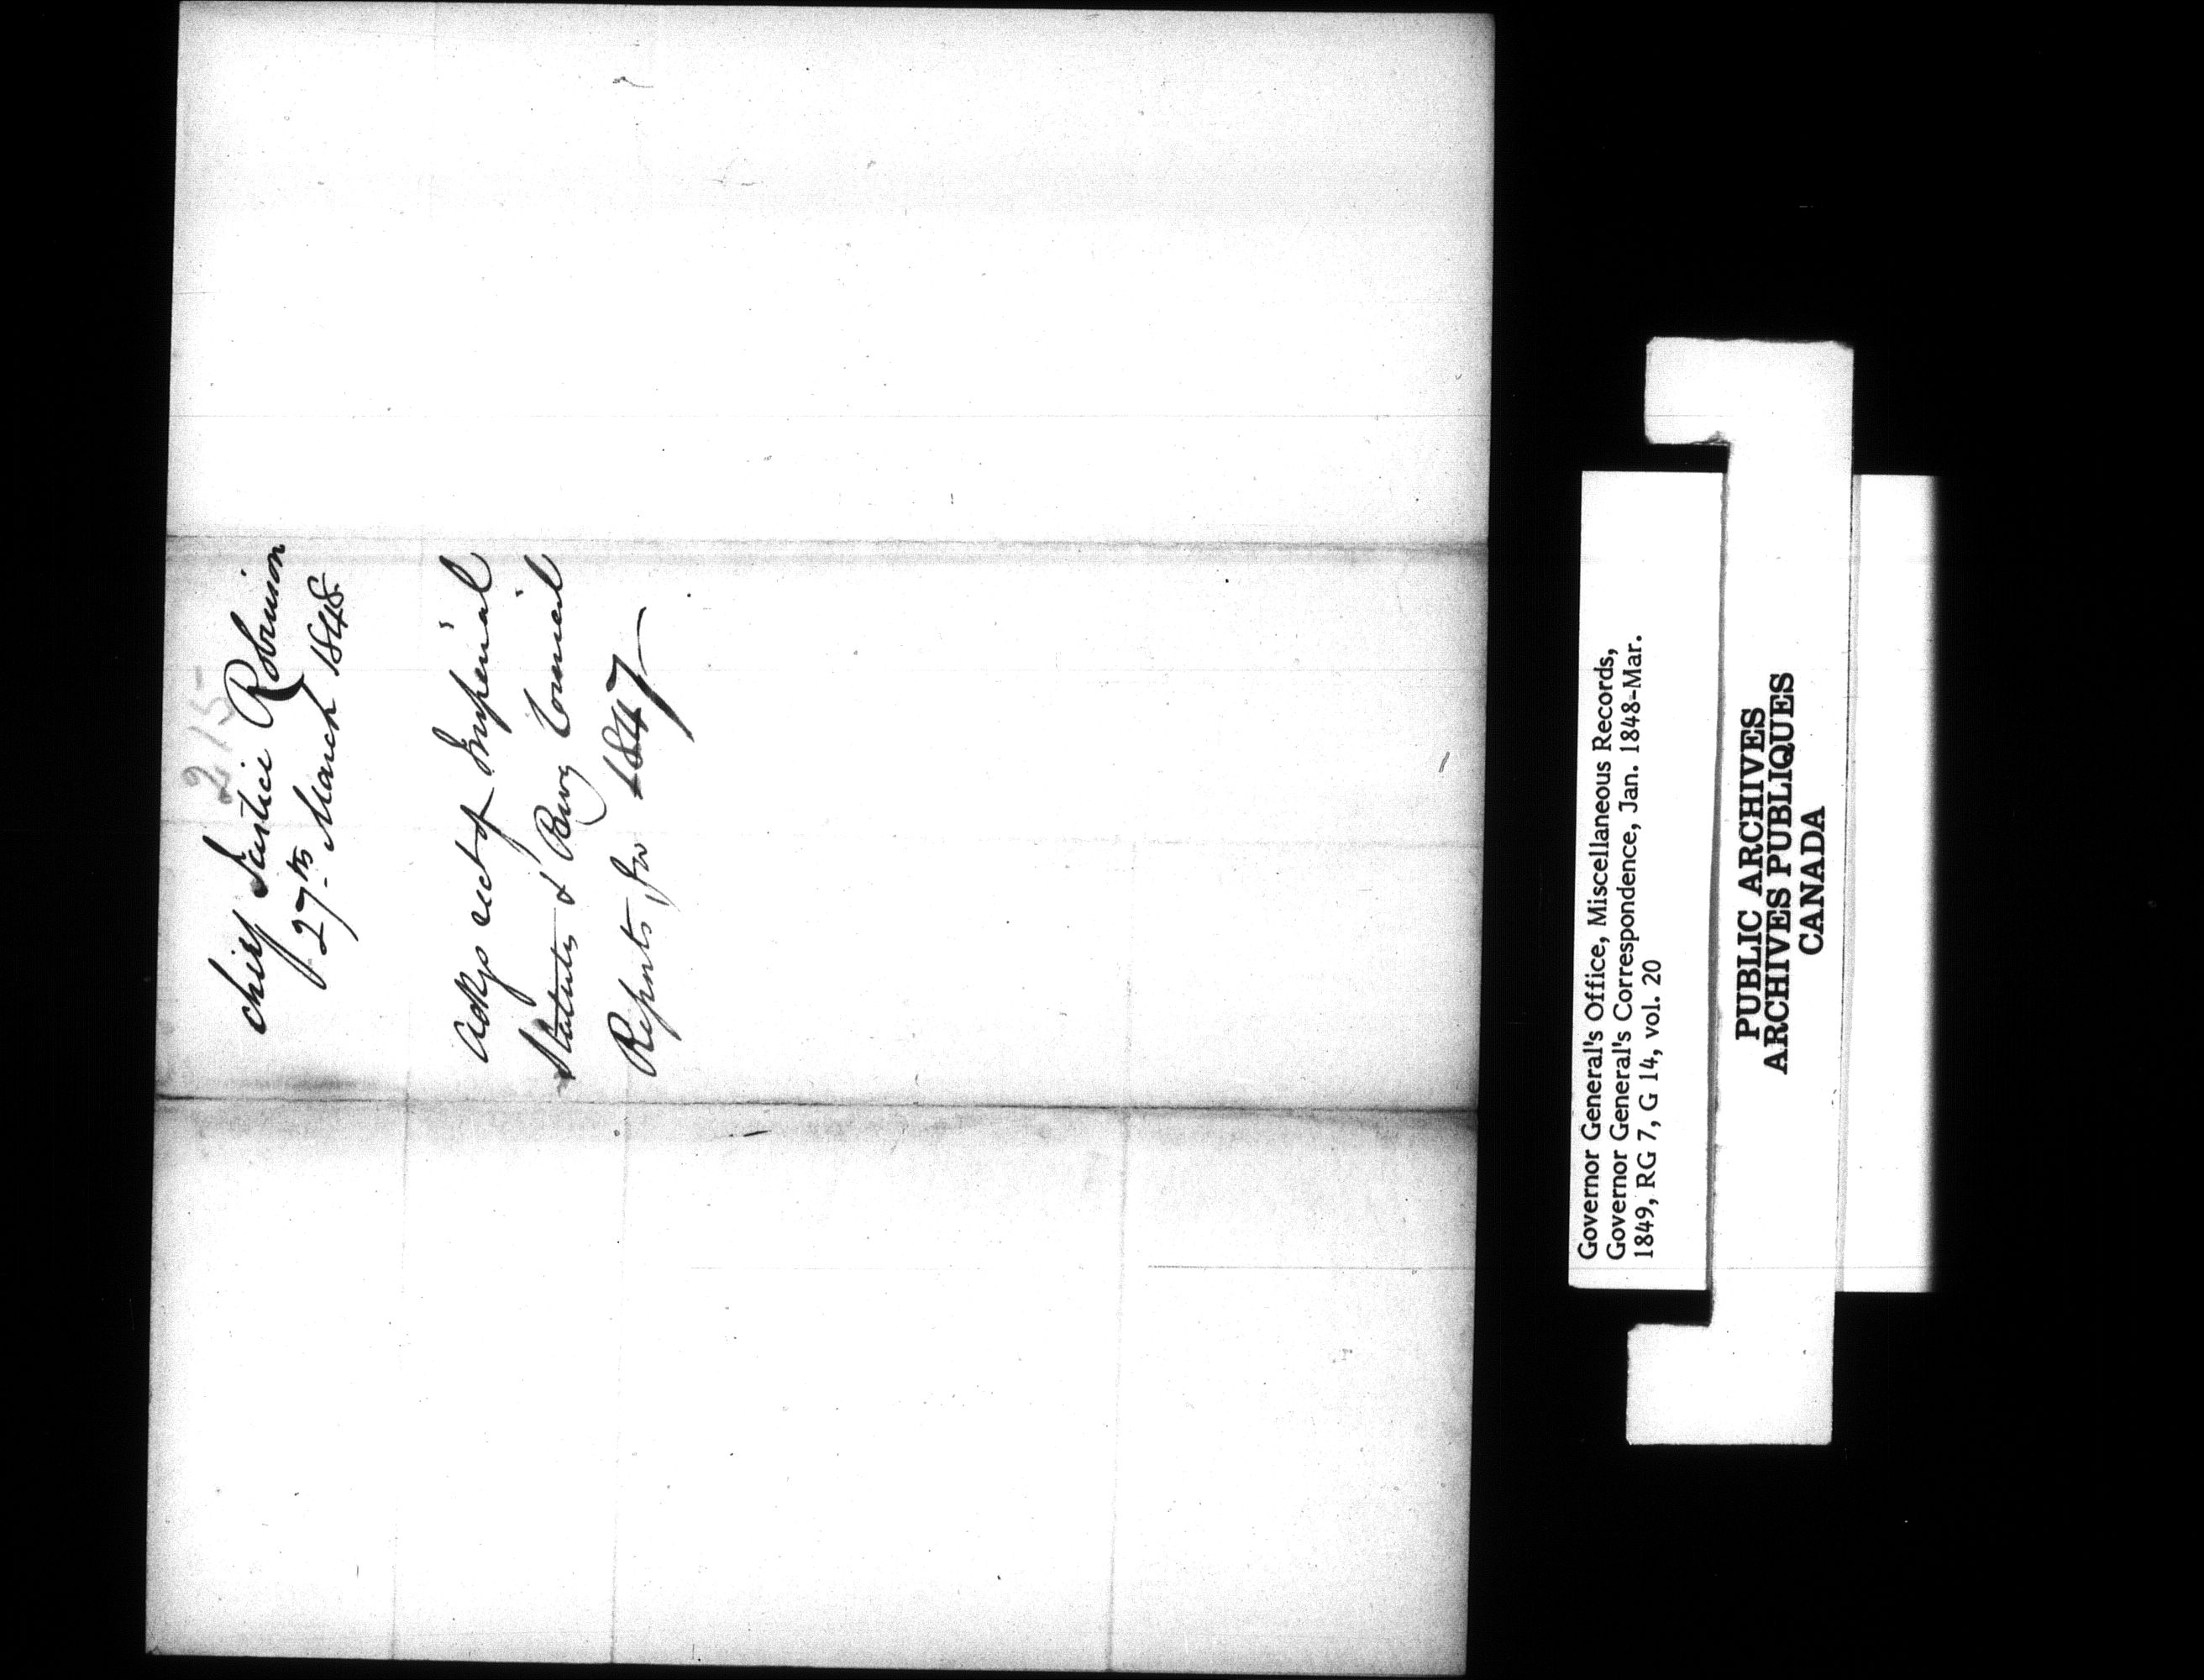 215
Chief Justice Robinson
27th March 1848
Ackgs rect of Imperial
Statutes & Privy Council
Reports, for 1847
Governor General's Office, Miscellaneous Records,
Governor General's Correspondence, Jan. 1848-Mar.
1849, RG 7, G 14, vol. 20
PUBLIC ARCHIVES
ARCHIVES PUBLIQUES
CANADA